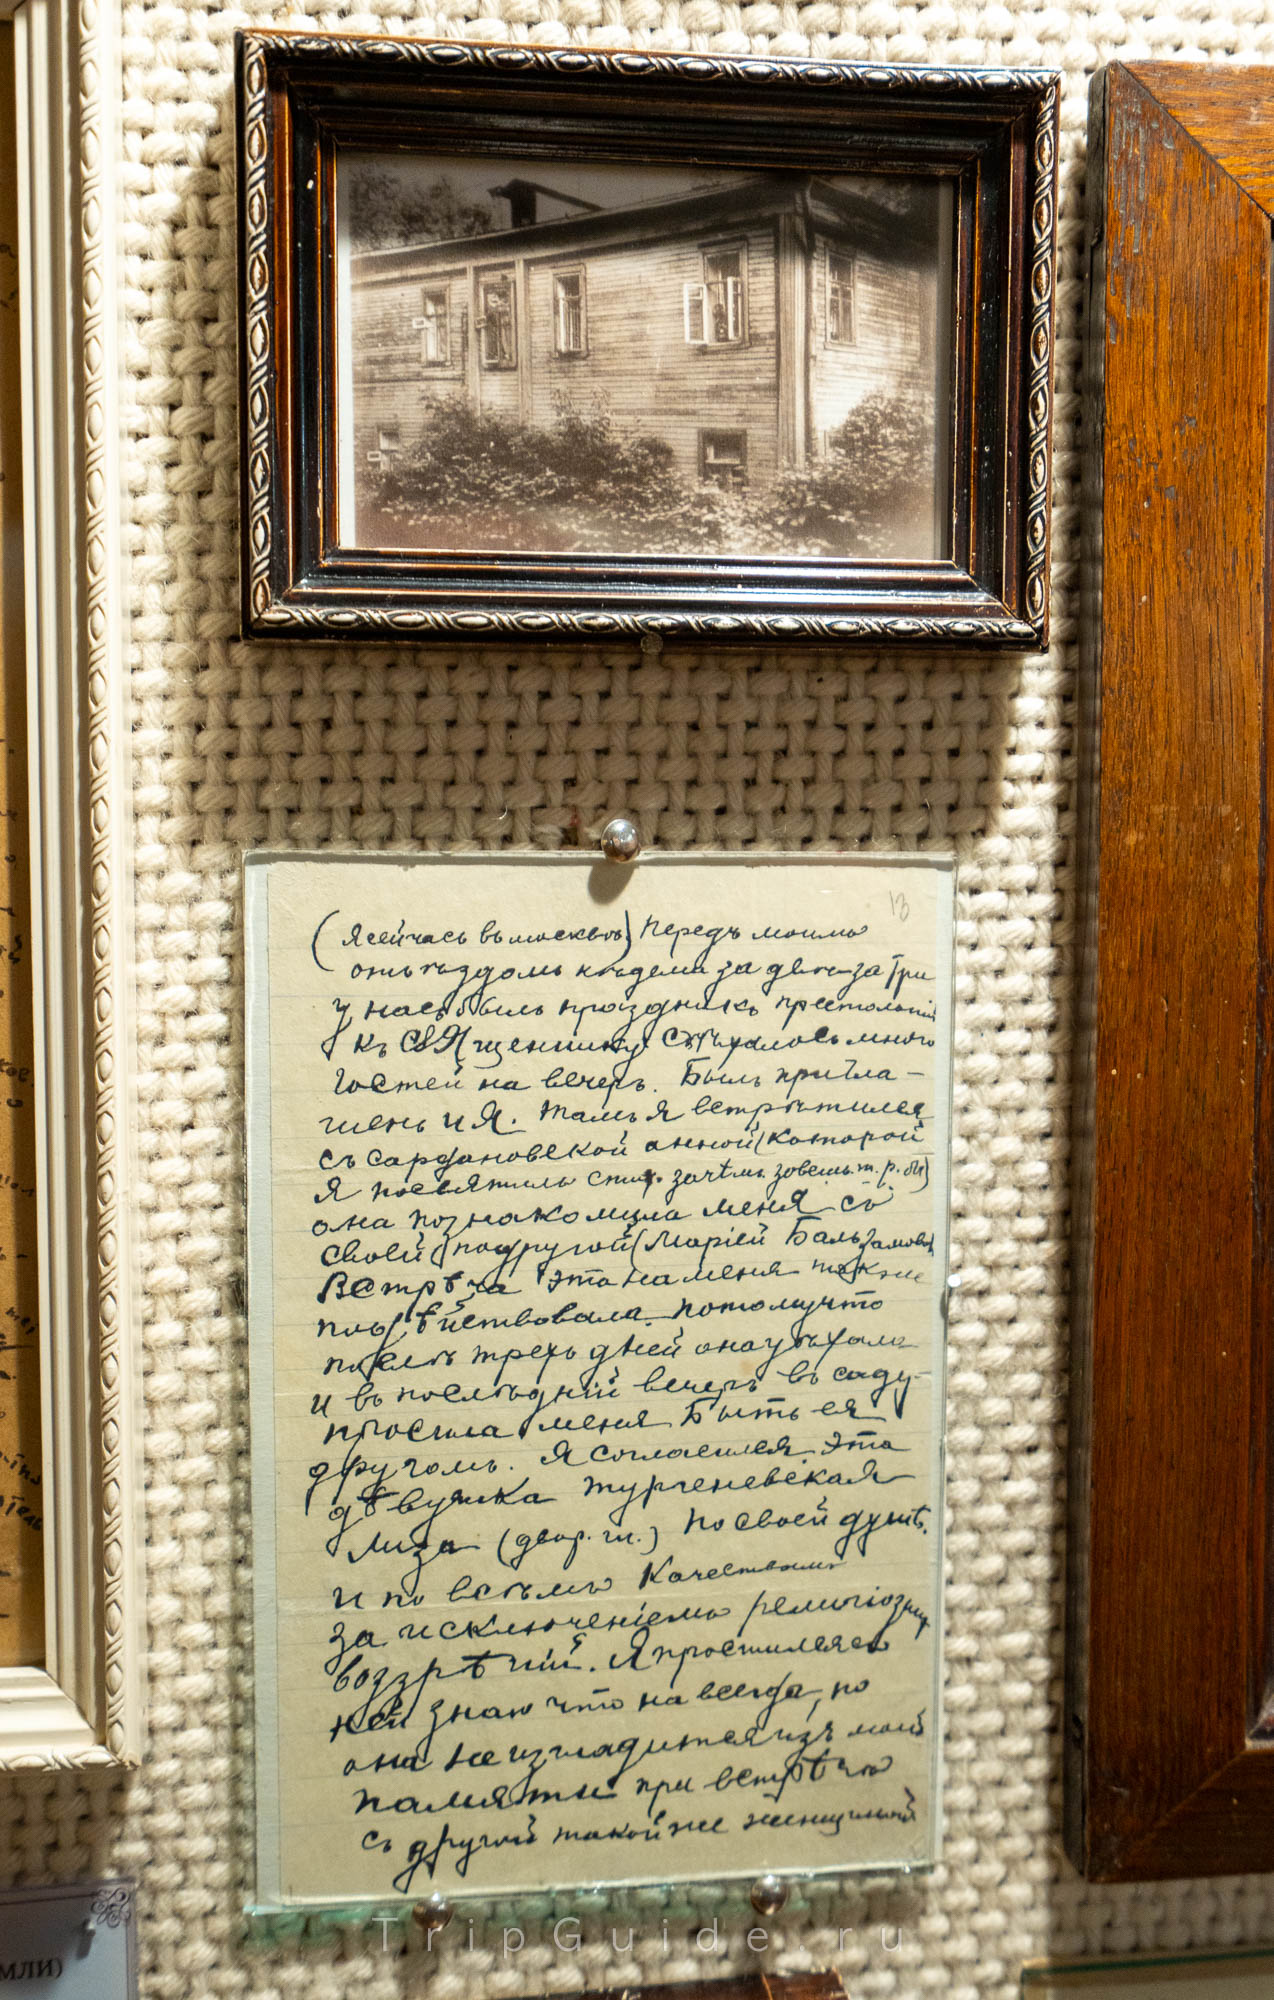 13
(Я сейчасъ въ москвѣ) Передъ моимъ
отъѣздомъ недели за две-за три
у насъ былъ праздникъ престольный
къ СВЯщеннику съѣхалось много
гостей на вечеръ. Былъ пригла-
шенъ и Я. тамъ я встрѣтился
съ сардановской анной (которой
Я посвятилъ стих. зачѣмъ зовешь т. р. бы)
она познакомила меня съ
своей подругой (Маріей Бальзамовой)
Встрѣча эта на меня также
подѣйствовала. потомучто
послѣ трехъ дней она уѣхала
и въ послѣдній вечеръ въ саду
просила меня Быть ея
другомъ. Я согласился эта
дѣвушка тургеневская
Лиза (двор. гн.) По своей душѣ.
и по всѣмъ качествамъ
за исключеніемъ религіозных
воззрѣній. Я простился съ
ней знаю что навсегда, но
она не изгладится изъ моей
памяти при встрѣчѣ
съ другой такой же женщиной
МЛИ)
TripGuide.ru